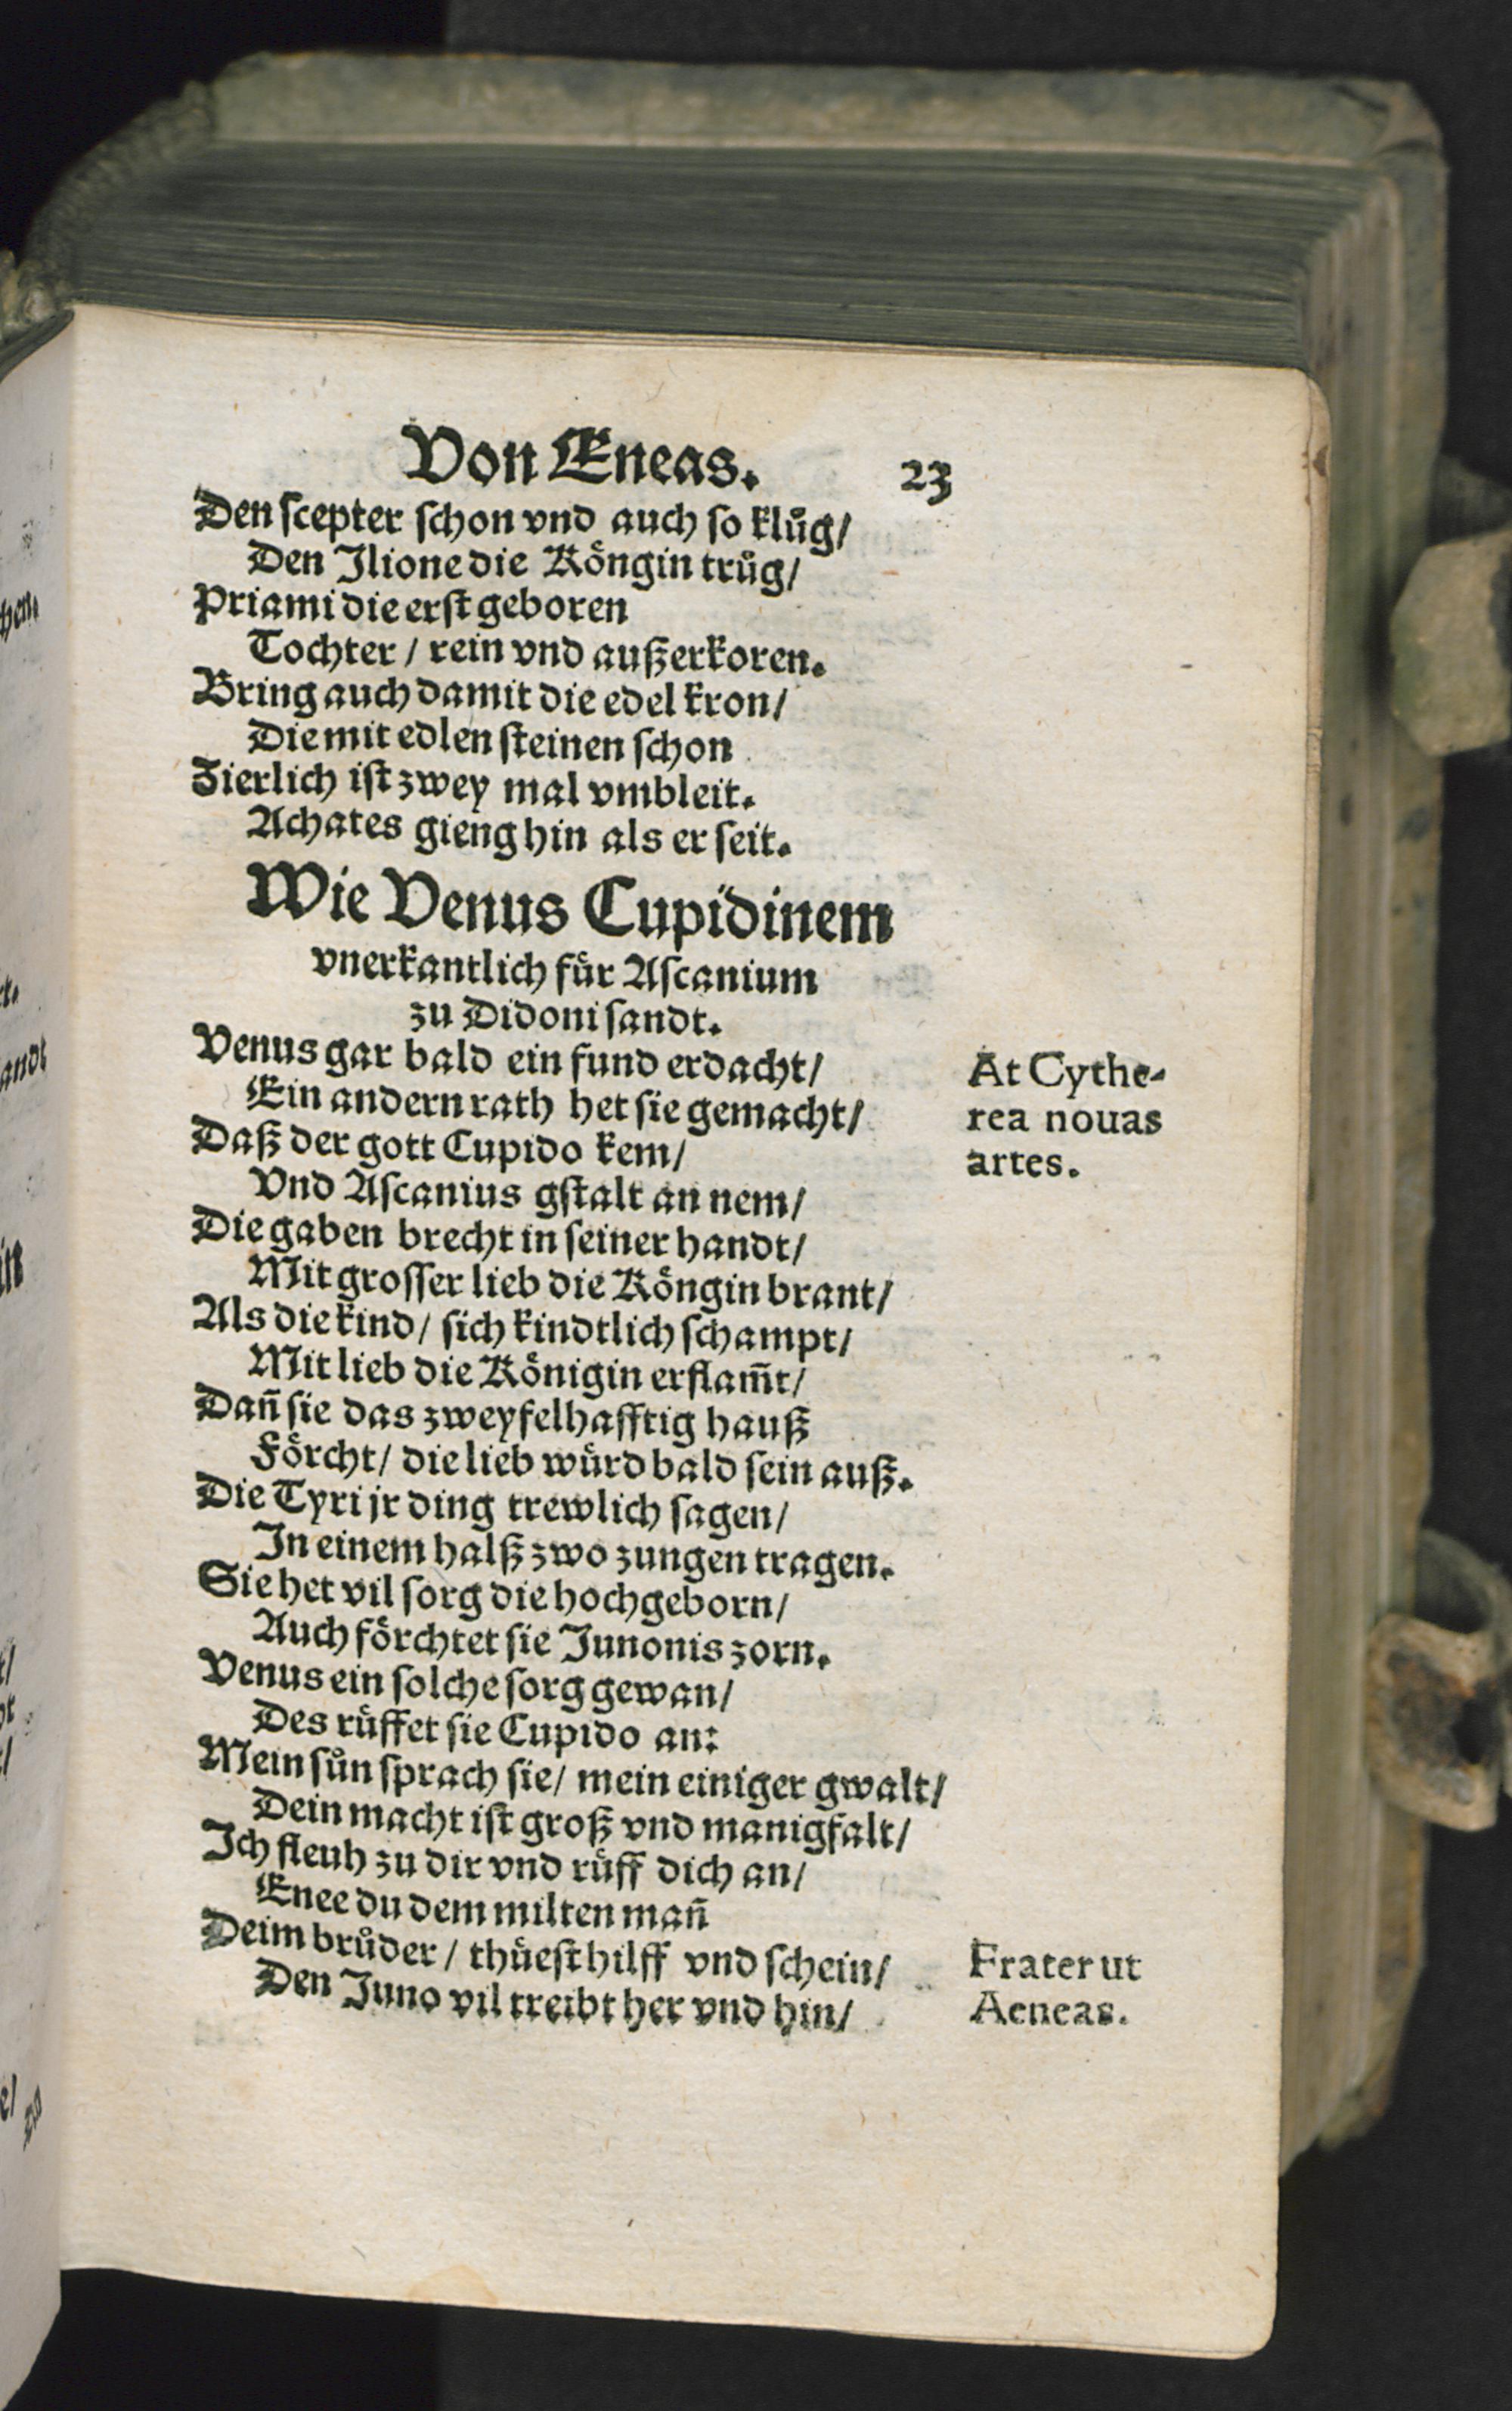 Von Eneas. 23
Den scepter schon vnd auch so klůg/
Den Ilione die Köngin trůg/
Priami die erst geboren
Tochter / rein vnd außerkoren.
Bring auch damit die edel kron/
Die mit edlen steinen schon
Zierlich ist zwey mal vmbleit.
Achates gieng hin als er seit.
Wie Venus Cupidinem
vnerkantlich für Ascanium
zu Didoni sandt.
Venus gar bald ein fund erdacht/
Ein andern rath het sie gemacht/
Daß der gott Cupido kem/
Vnd Ascanius gstalt an nem/
Die gaben brecht in seiner handt/
Mit grosser lieb die Köngin brant/
Als die kind/ sich kindtlich schampt/
Mit lieb die Königin erflam̃t/
Dañ sie das zweyfelhafftig hauß
Förcht/ die lieb würd bald sein auß.
Die Tyri jr ding trewlich sagen/
In einem halß zwo zungen tragen.
Sie het vil sorg die hochgeborn/
Auch förchtet sie Junonis zorn.
Venus ein solche sorg gewan/
Des rüffet sie Cupido an:
Mein sůn sprach sie/ mein einiger gwalt/
Dein macht ist groß vnd manigfalt/
Ich fleuh zu dir vnd rüff dich an/
Enee du dem milten mañ
Deim brůder / thüest hilff vnd schein/
Den Juno vil treibt her vnd hin/
At Cythe-
rea nouas
artes.
Frater ut
Aeneas.